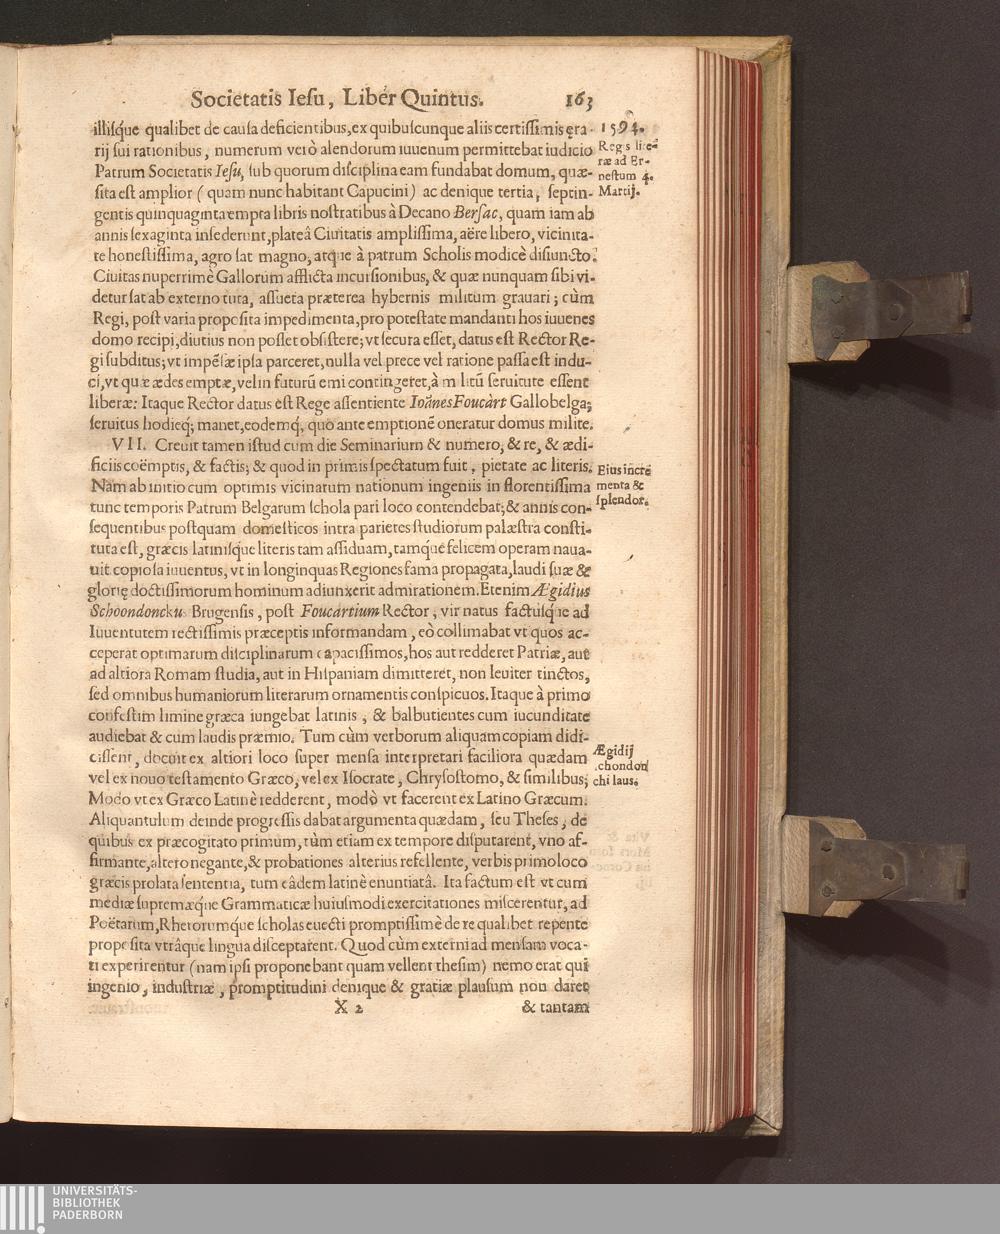 Societatis Iesu, Liber Quintus. 163
illisque qualibet de causa deficientibus, ex quibuscunque aliis certissimis ęra-
rij sui rationibus, numerum verò alendorum iuuenum permittebat iudicio
Patrum Societatis Iesu, sub quorum disciplina eam fundabat domum, quæ-
sita est amplior (quam nunc habitant Capucini) ac denique tertia, septin-
gentis quinquaginta empta libris nostratibus à Decano Bersac, quam iam ab
annis sexaginta insederunt, plateâ Ciuitatis amplissima, aëre libero, vicinita-
te honestissima, agro sat magno, atque à patrum Scholis modicè disiuncto.
Ciuitas nuperrimè Gallorum afflicta incursionibus, & quæ nunquam sibi vi-
detur sat ab externo tuta, assueta præterea hybernis militum grauari; cùm
Regi, post varia proposita impedimenta, pro potestate mandanti hos iuuenes
domo recipi, diutius non posset obsistere; vt secura esset, datus est Rector Re-
gi subditus; vt impẽsæ ipsa parceret, nulla vel prece vel ratione passa est indu-
ci, vt quæ ædes emptæ, vel in futurũ emi contingeret, à militũ seruitute essent
liberæ: Itaque Rector datus est Rege assentiente Ioãnes Foucàrt Gallobelga;
seruitus hodieq; manet, eodemq́, quo ante emptionẽ oneratur domus milite.
VII. Creuit tamen istud cum die Seminarium & numero, & re, & ædi-
ficiis coëmptis, & factis; & quod in primis spectatum fuit, pietate ac literis.
Nam ab initio cum optimis vicinarum nationum ingeniis in florentissima
tunc temporis Patrum Belgarum schola pari loco contendebat; & annis con-
sequentibus postquam domesticos intra parietes studiorum palæstra consti-
tuta est, græcis latinisque literis tam assiduam, tamq́ue felicem operam naua-
uit copiosa iuuentus, vt in longinquas Regiones fama propagata, laudi suæ &
glorię doctissimorum hominum adiunxerit admirationem. Etenim Ægidius
Schoondonckus Brugensis, post Foucartium Rector, vir natus factusq́ue ad
Iuuentutem rectissimis præceptis informandam, eò collimabat vt quos ac-
ceperat optimarum disciplinarum capacissimos, hos aut redderet Patriæ, aut
ad altiora Romam studia, aut in Hispaniam dimitteret, non leuiter tinctos,
sed omnibus humaniorum literarum ornamentis conspicuos. Itaque à primo
confestim limine græca iungebat latinis, & balbutientes cum iucunditate
audiebat & cum laudis præmio. Tum cùm verborum aliquam copiam didi-
cissent, docuit ex altiori loco super mensa interpretari faciliora quædam
vel ex nouo testamento Græco, vel ex Isocrate, Chrysostomo, & similibus;
Modo vt ex Græco Latinè redderent, modò vt facerent ex Latino Græcum.
Aliquantulum deinde progressis dabat argumenta quædam, seu Theses, de
quibus ex præcogitato primum, tùm etiam ex tempore disputarent, vno af-
firmante, altero negante, & probationes alterius refellente, verbis primo loco
græcis prolata sententia, tum eâdem latinè enuntiatâ. Ita factum est vt cum
mediæ supremæq́ue Grammaticæ huiusmodi exercitationes miscerentur, ad
Poëtarum, Rhetorumq́ue scholas euecti promptissimè de re qualibet repente
proposita vtrâque lingua disceptarent. Quod cùm externi ad mensam voca-
ti experirentur (nam ipsi proponebant quam vellent thesim) nemo erat qui
ingenio, industriæ, promptitudini denique & gratiæ plausum non daret
X 2 & tantam
1594.
Regis lite-
ræ ad Er-
nestum 4.
Martij.
Eius incrẽ
menta &
splendor.
Ægidij
chondon
chi laus.
UNIVERSITÄTS-
BIBLIOTHEK
PADERBORN